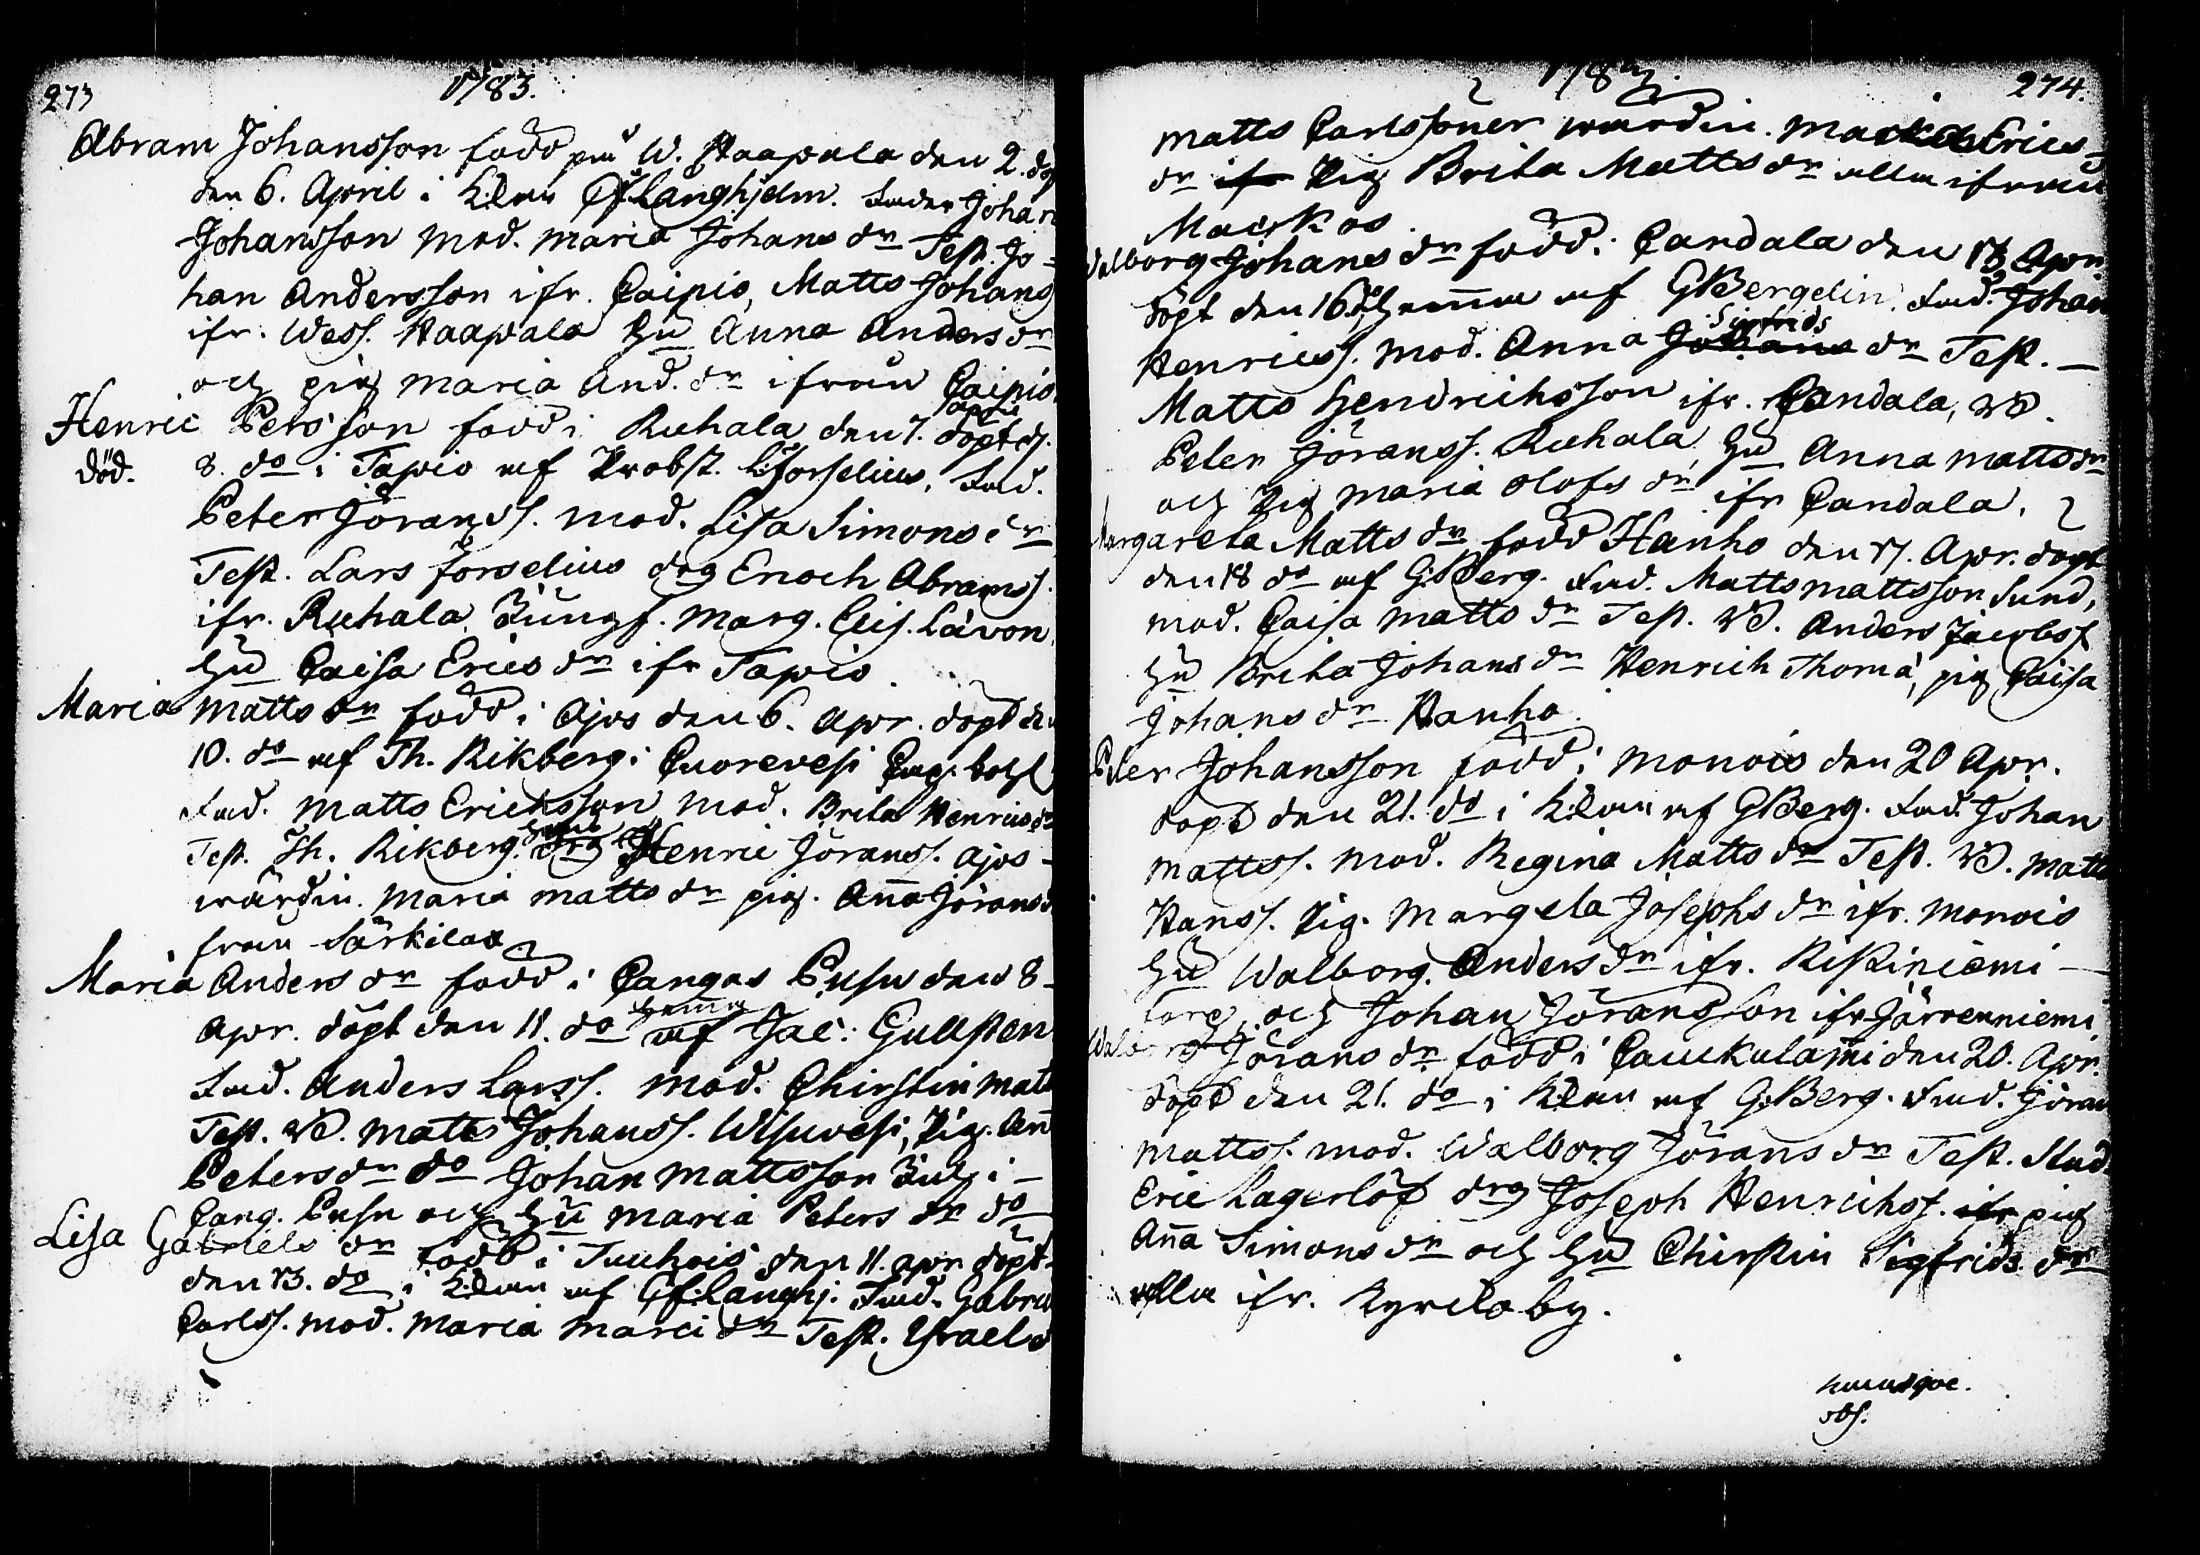 273
1783.
Abram Johansson född på W. Haapala den 2. döp
den 6. April i Kkan Gf Långhjelm. Fader Johan
Johansson Mod. Maria Johans dr Test. Jo=
han Andersson ifr. Caipio, Matts Johans
ifr. Wess. Haapala hu Anna Anders dr
och pig Maria And. dr ifrån Caipio.
Henric Persson född i Ruhala den 7. April döpt d.
död. 8. do i Tapio af Probst. L Forselius. Fad.
Peter Jöranss. Mod. Lisa Simons dr
Test. Lars Forselius drg Enoch Abramss.
ifr. Ruhala Jungf. Marg. Elis. Lavon.
hu Caisa Erics dr ifr Tapio.
Maria Matts dr född i Ajos den 6. Apr. döpt den
10. do af Th. Rikberg i Cuorevesi Cap. bohl
Fad. Matts Ericksson mod. Brita Henrics dr
Test. Th. Rikberg. drg Henric Jöranss. Ajos -
wärdin. Maria Matts dr pig. Ana Jörans d
från Särkilax.
Maria Anders dr född i Cangas Pusu den 8
Apr. döpt den 11. do hema af Jac: Gullsten
Fad. Anders Larss. Mod. Chirstin Mat
Test. Bd. Matts Johanss. Wisuvesi, Pig. An
Peters dr do Johan Mattsson Inh i -
Cang. Pusu och hu Maria Peters dr do
Lisa Gabriels dr född i Tuuhois den 11. apr döpt
den 13. do i Kkan af Gf Långhj. Fad. Gabrie
Carlss. mod. Maria Marci dr Test. Ysraels
274.
1783.
Matts Carlssöner wärdin. Maria Erics -
dr ifr Pig Brita Matts dr alla ifrån
Mackos.
Valborg Johans dr född i Candala den 13 Apr.
döpt den 16. do hema af GBergelin. Fad. Johan
Henricss. Mod. Anna Johans Sigfrids dr Test. -
Matts Hendrichsson ifr. Candala, Bd.
Peter Jöranss. Ruhala, hu Anna Mattsdr
och Pig Maria Olofs dr ifr Candala.
Margareta Matts dr född Hanho den 17. Apr. döpt
den 18 do af G:Berg. Fad. Matts Mattsson Sund,
Mod. Caisa Matts dr Test. Bd. Anders Jacobss
hu Brita Johans dr Henrich Thoma, pig Caisa
Johans dr Hanho.
Peter Johansson född i Monois den 20 Apr.
döpt den 21. do i Kkan af GBerg. Fad. Johan
Mattss. Mod. Regina Matts dr Test. Bd. Matts
Hanss. Pig. Margeta Josephs dr ifr. Monois
hu Walborg Anders dr ifr. Ristiniemi -
torp. och Johan Jöransson ifr Järvenniemi
Walborg Jörans dr född i Cauckulami den 20. Apr.
döpt den 21. do i Kkan af G:Berg. Fad. Jöran
Mattss. mod. Walborg Jörans dr Test. Stud.
Eric Lagerlöf drg Joseph Henrichss. ifr pig
Ana Simons dr och hu Chirstin Sigfrids dr
alla ifr. Kyrckoby.